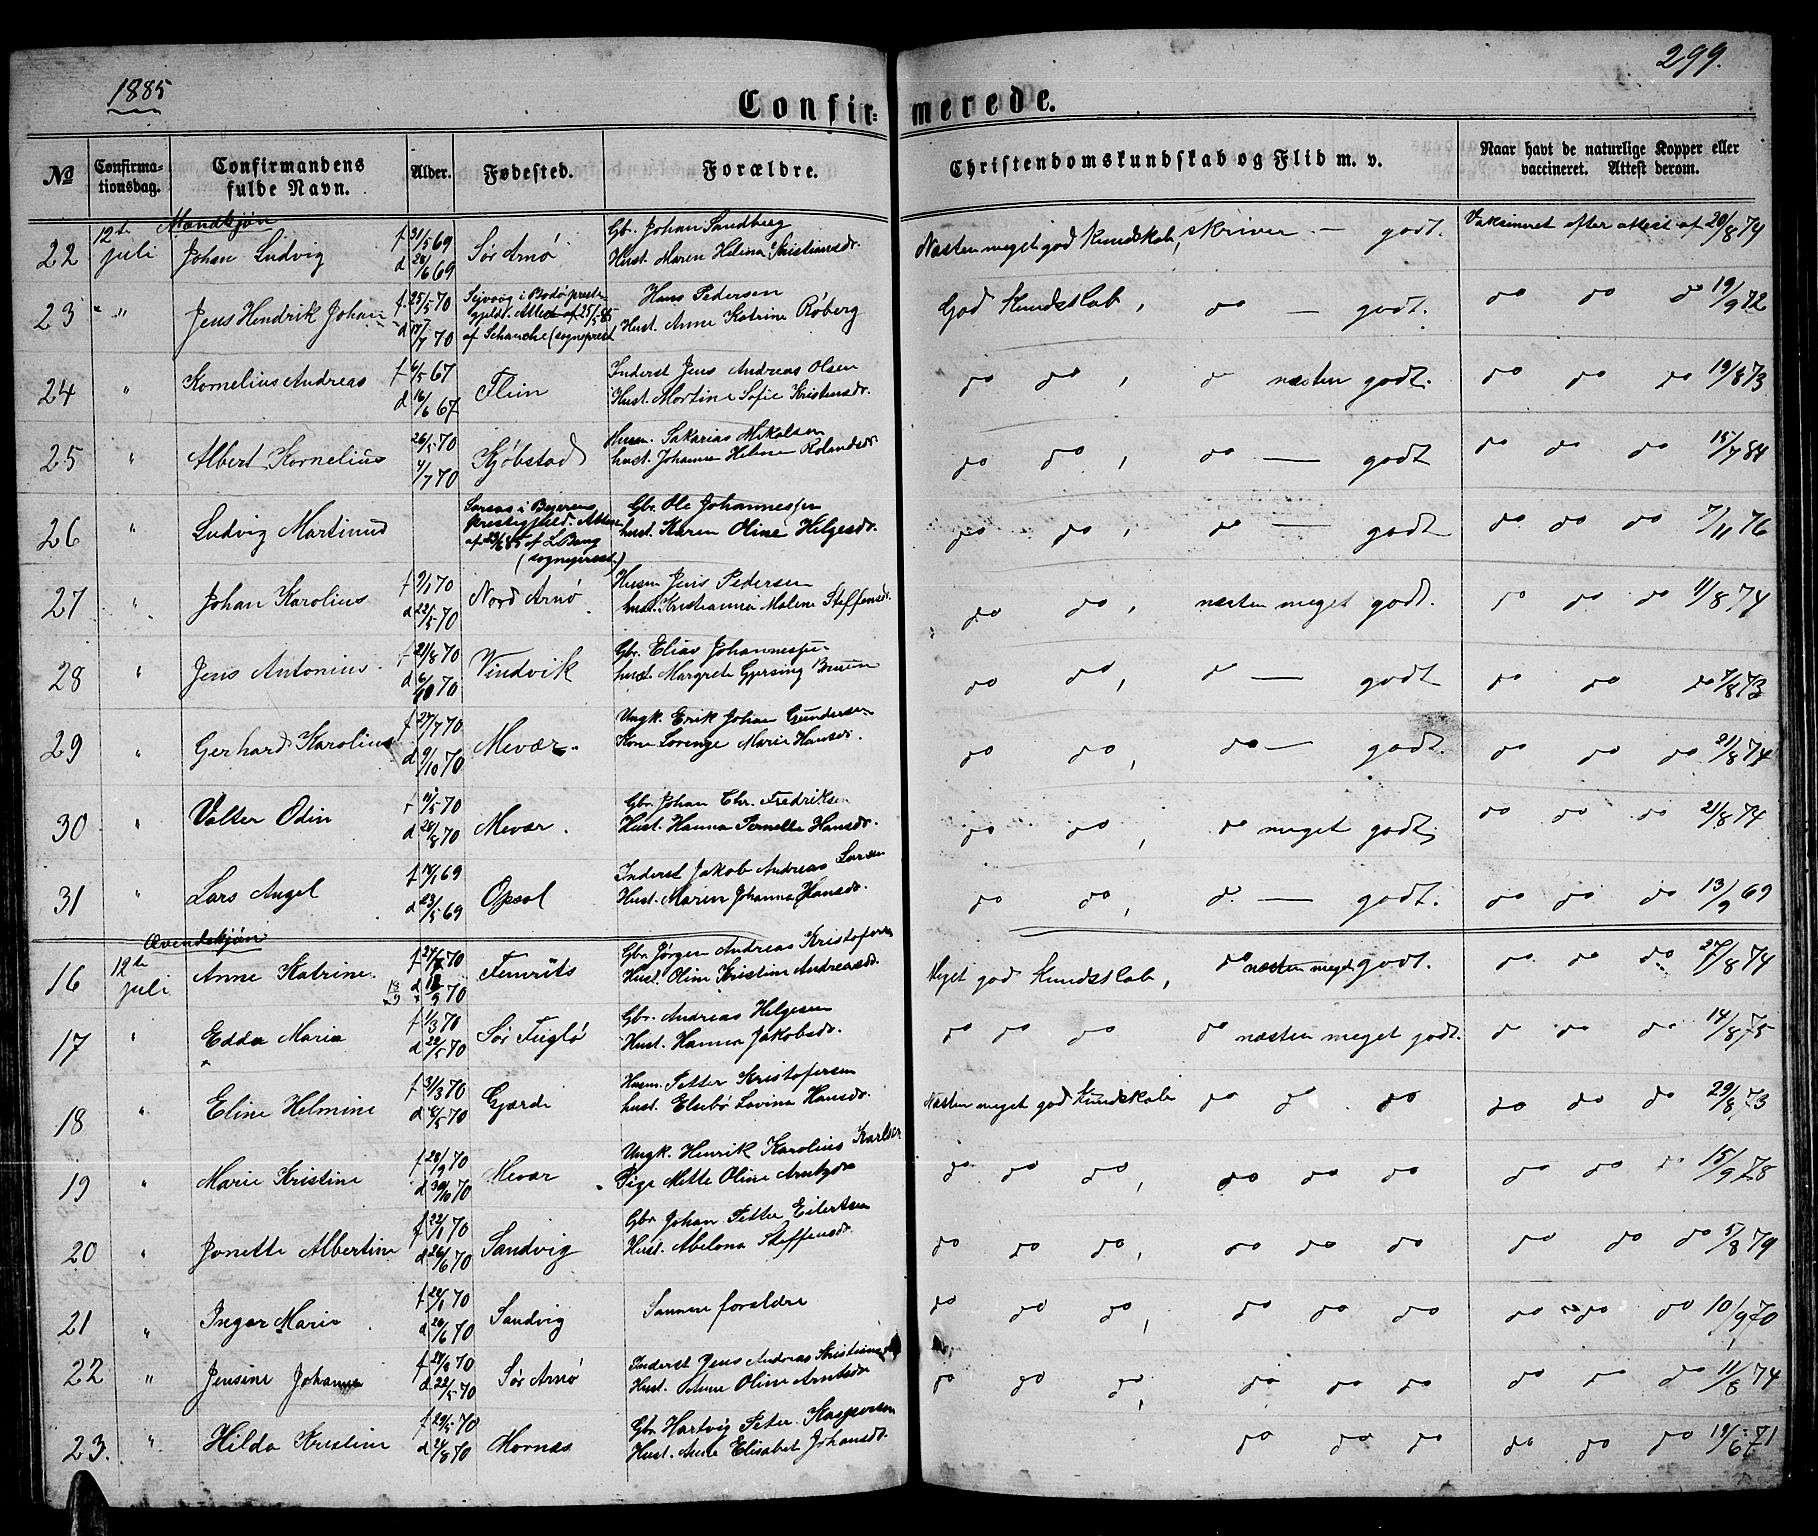 1885
299.
Confirmerede.
No
Confirmationsdag.
Confirmandens fulde Navn.
Alder.
Fødested.
Forældre.
Christendomskundskab og Flid m. v.
Naar havt de naturlige Kopper eller vaccineret. Attest derom.
Mandkjøn
22 12te juli Johan Ludvig f 31/5 69 d 20/6 69 Sør Arnø Gbr. Johan Sandberg Hust. Maren Helina Kristiansdr. Næsten meget god Kundskab, skriver — godt. Vaksineret efter attest af 20/8 74
23 " Jens Hendrik Johan f. 25/5 70 d /7 70 i Bodø preste Gjeld. Attest af 25/5 85 af Schanche (sogneprest Hans Pedersen Hust. Anne Katrine Røberg God Kundskab, do — godt. do do do 19/9 72
24 " Kornelius Andreas f /5 67 d 16/6 67 Flein Inderst Jens Andreas Olsen Hust. Martine Sofie Kristensdr. do do, do næsten godt. do do do 19/8 73
25 " Albert Kornelius 26/5 70 /7 70 Kjøbstad Husm. Sakarias Mikalsen hust. Johanna Helene Rolandsdr. do do, do — godt do do do 15/7 84
26 " Ludvig Martinus i Beierens prestegjeld. Attest af 23/6 85 af L. Bang (sogneprest.) Gbr. Ole Johannessen hust. Karen Oline Helgesdr. do do, do — godt do do do 7/11 76
27 " Johan Karolius f 9/1 70 d 22/5 70 Nord Arnø Husm Jens Pedersen hust. Kristianna Malene Steffensdr. do do, næsten meget godt. do do do 11/8 74
28 " Jens Antonius. f 21/8 70 d /10 70 Vindvik Gbr. Elias Johannessen hust. Margrete Gjersing Bruun do do, do — godt do do do 7/8 73
29 " Gerhard Karolius f 27/7 70 d 9/10 70 Mevær. Ungk. Erik Johan Gundersen Kone Lorenze Marie Hansdr. do do, do — godt. do do do 21/8 74
30 " Valter Odin f /5 70 d 28/8 70 Mevær. Gbr. Johan Chr. Fredriksen Hust. Hanna Pernella Hansdr. do do, do meget godt; do do do 21/8 74
31 " Lars Angel f /1 69 d 23/5 69 Opsal Inderst Jakob Andreas Larsen Hust. Maren Johanna Hansdr. do do, do — godt. do do do 13/9 69
Qvendekjøn
16 12te juli Anne Katrine. 70 /9 70 Gbr. Jørgen Andreas Kristofersen Hust. Oline Kristine Andreasdr. Meget god Kundskab, do næsten meget godt. do do do 27/8 74
17 " Edda Maria f 1/3 70 d 22/5 70 Sør Fuglø Gbr. Andreas Helgesen Hust. Hanna Jakobsdr. do do do do næsten meget godt. do do do 14/8 75
18 " Eline Helmine f 31/3 70 d /5 70 Gjærde Husm. Petter Kristofersen hust. Elsebø Lovina Hansdr. Næsten meget god Kundskab do do do do do do 29/8 73
19 " Marie Kristine f 28/9 70 d 30/10 70 Mevær Ungk. Henrik Karolius Karlsen Pige Mette Oline Arntsdr do do do, do do do do do do 15/9 78
20 " Jonette Albertine f 22/1 70 d 26/6 70 Sandvig Gbr Johan Petter Eilertsen Hust. Abelona Steffensdr. do do do, do do do do do do 5/8 79
21 " Inger Marie f 22/1 70 d 26/6 70 Sandvig Samme forældre do do do, do do do do do do 10/9 70
22 " Jensine Johanna f 70 d 22/5 70 Sør Arnø Inderst Jens Andreas Kristiansen Hust. Oline Arntsdr do do do, do do do do do do 11/8 74
23. " Hilda Kristine f 29/5 70 d /8 70 Hornæs Gbr. Hartvig Peter Kaspersen Hust. Anne Elisabet Johansdr. do do do do do do 19/6 71